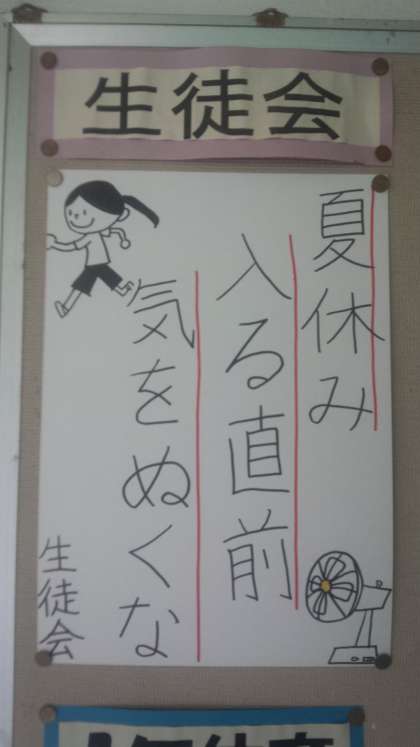 生徒会
夏休み
入る直前
気をぬくな
生徒会